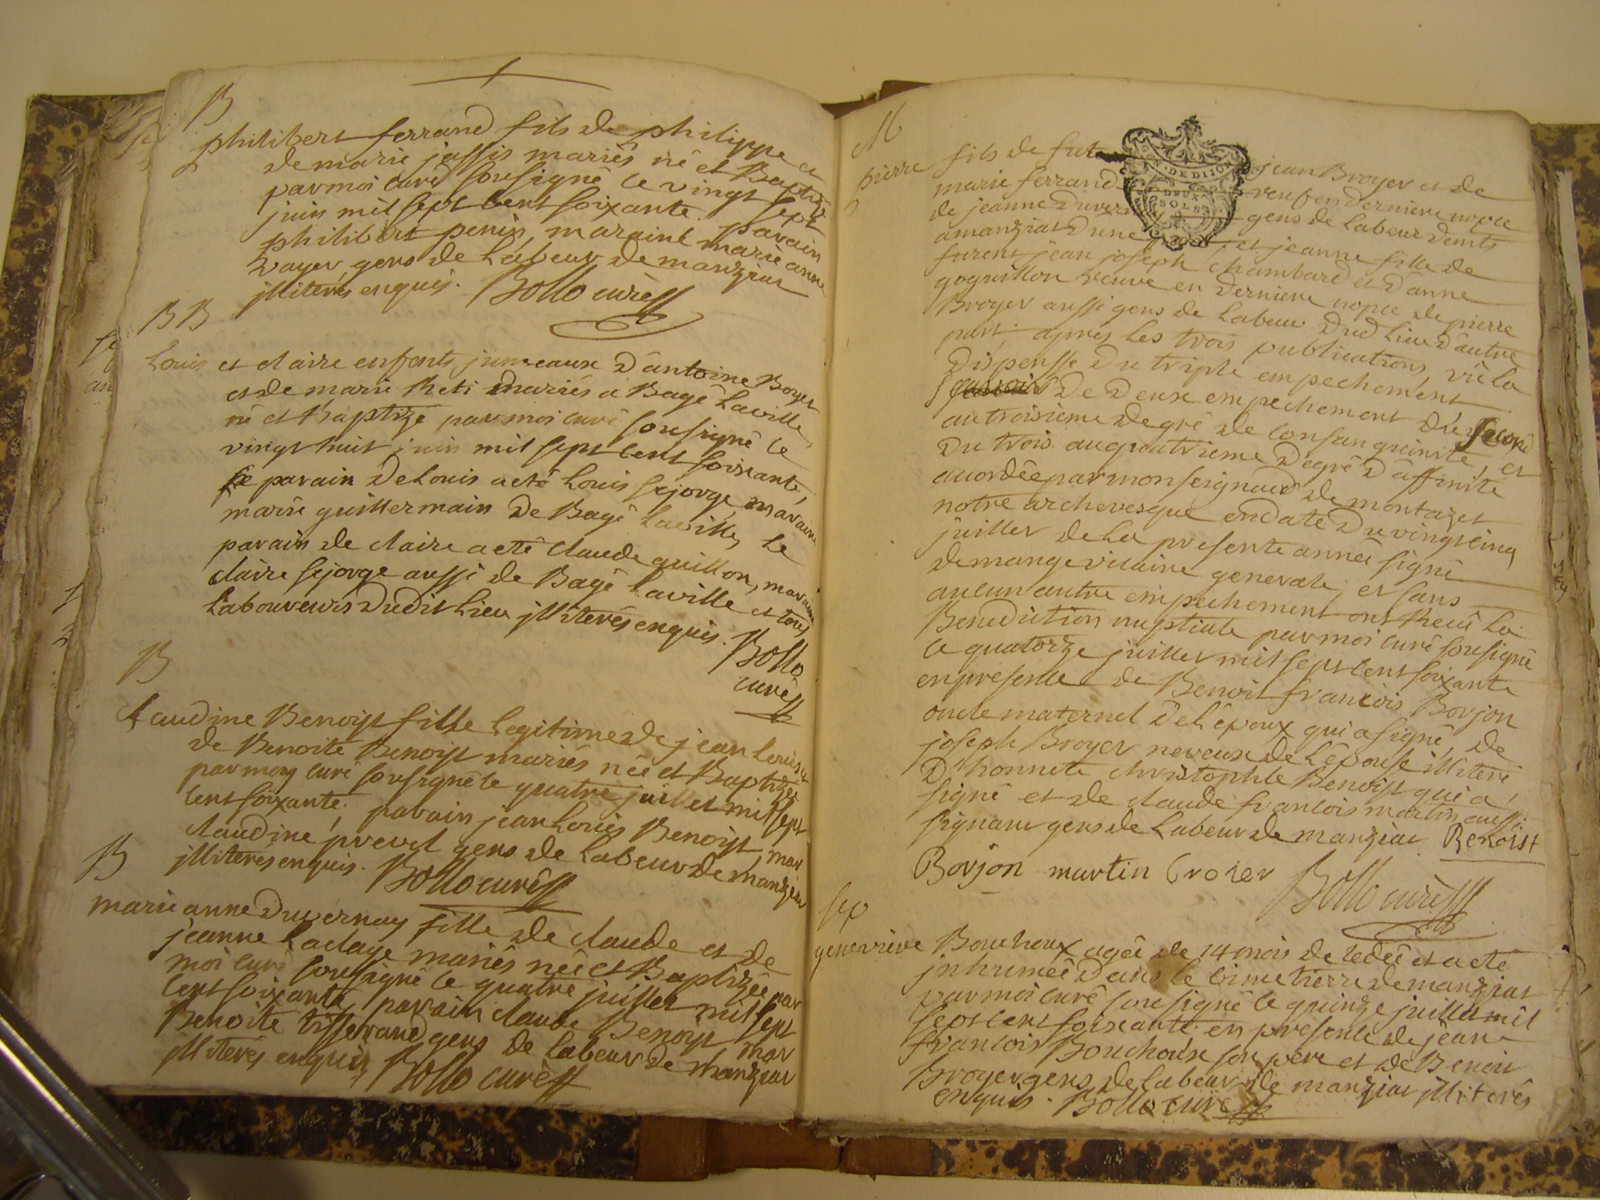 B
philibert ferrand fils de philippe et
de marie jassis mariés né et Baptizé
par moi curé sousigné le vingt sept
juin mil sept cent soixante. parain
philibert penin, maraine marie anne
gens de labeur de manziat
illiterés enquis. Bollo curé
BB
Louis et claire enfents jumeaux d'antoine Boyer
et de marie Reti mariés a Bagé laville,
né et Baptizé par moi curé sousigné le
vingt huit juin mil sept cent soixante,
le parain de Louis a eté Louis sejorge maraine
marie guillermain de Bagé laville, le
parain de claire a eté claude guillon, maraine
claire sejorge aussi de Bagé laville et tous
laboureurs dudit lieu illiterés enquis. Bollo
curé
B
claudine Benoist fille legitime de jean louis et
de Benoite Benoist mariés née et Baptizée
par moy curé sousigné le quatre juillet mil sept
cent soixante. parain jean Louis Benoist mar
claudine prevel gens de labeur de manziat
illiterés enquis. Bollo curé
B
marie anne Duvernay fille de claude et de
jeanne Laclaye mariés née et Baptizée par
moi curé sousigné le quatre juillet mil sept
cent soixante, parain claude Benoist mar
Benoite tisserand gens de labeur de manziat
illiterés enquis Bollo curé
M
pierre fils de fut jean Broyer et de
marie ferrand veuf en derniere nopce
de jeanne Duver gens de labeur demts
a manziat d'une part, et jeanne fille de
furent jean joseph chambard et d'anne
goyuillon veuve en derniere nopce de pierre
Broyer aussi gens de labeur dud lieu d'autre
part. apres les trois publications, vû la
dispense du triple empechement
de deux empechement du second
au troisieme degré de consanguinité, et
du trois au quatrieme degré d'affinité
accordée par monseigneur de montazet
notre archevesque en date du vingt cinq
juillet de la presente année signé
de mange vicaire general, et sans
aucun autre empechement ont Recû la
Benediction nuptiale par moi curé sousigné
le quatorze juillet mil sept cent soixante
en presence de Benoit francois Borjon
oncle maternel de l'époux qui a signé, de
joseph Broyer neveux de l'épouse illiteré
D'honnete christophle Benoist qui a
signé et de claude francois martin aussi
signant gens de labeur de manziat. Benoist
Borjon martin Croier Bollo curé
Sep
genevieve Bouchoux agée de 14 mois decedée et a eté
inhumée dans le cimetierre de manziat
par moi curé sousigné le quinze juillet mil
sept cent soixante. en presence de jean
francois Bouchoux son pere et de Benoit
Broyer gens de labeur de manziat illiterés
enquis. Bollo curé